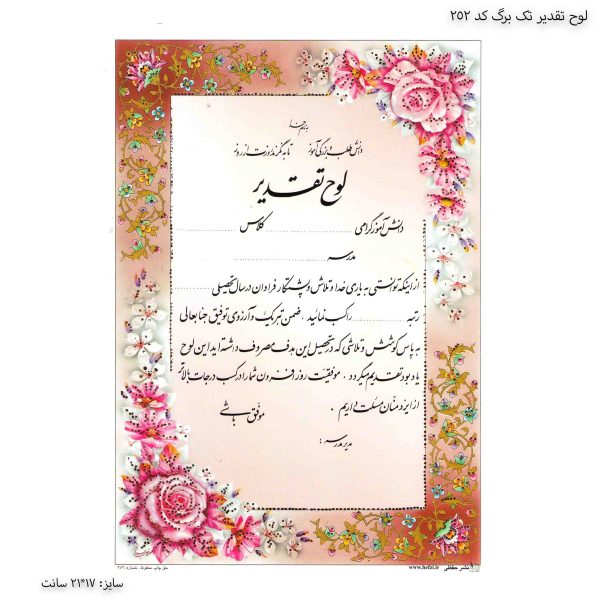 لوح تقدیر تک برگ کد ۲۵۲
بنام خدا
دانش طلب و بزرگی آموز    تا به نگرند روزت از روز
لوح تقدیر
دانش آموز گرامی .................... کلاس ....................
مدرسه ....................
از اینکه توانستی به یاری خدا و تلاش و پشتکار فراوان در سال تحصیلی
.................... رتبه .................... را کسب نمائید . ضمن تبریک و آرزوی توفیق جنابعالی
به پاس کوشش و تلاشی که در تحصیل این هدف مصروف داشته اید این لوح
یادبود تقدیم میگردد . موفقیت روز افزون شما را در کسب درجات بالاتر
از ایزد منان مسئلت داریم .
موفق باشی
مدیر مدرسه :
نشر حفظی www.hefzi.ir
حق چاپ محفوظ - شماره: ۲۵۲
سایز: ۱۷*۲۱ سانت